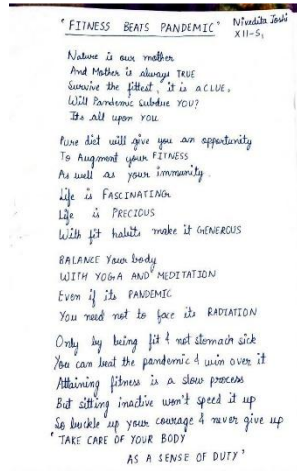 "FITNESS BEATS PANDEMIC"
Nivedita Joshi
XII-S,
Nature is our mother
And Mother is always TRUE
Survive the fittest, it is a CLUE,
Will Pandemic Subdue YOU?
Its all upon You
Pure diet will give you an opportunity
To Augment your FITNESS
As well as your immunity.
Life is FASCINATING
Life is PRECIOUS
With fit habits make it GENEROUS
BALANCE Your body
WITH YOGA AND MEDITATION
Even if its PANDEMIC
You need not to face its RADIATION
Only by being fit & not stomach sick
You can beat the pandemic & win over it
Attaining fitness is a slow process
But sitting inactive won't speed it up
So buckle up your courage & never give up
"TAKE CARE OF YOUR BODY
AS A SENSE OF DUTY"